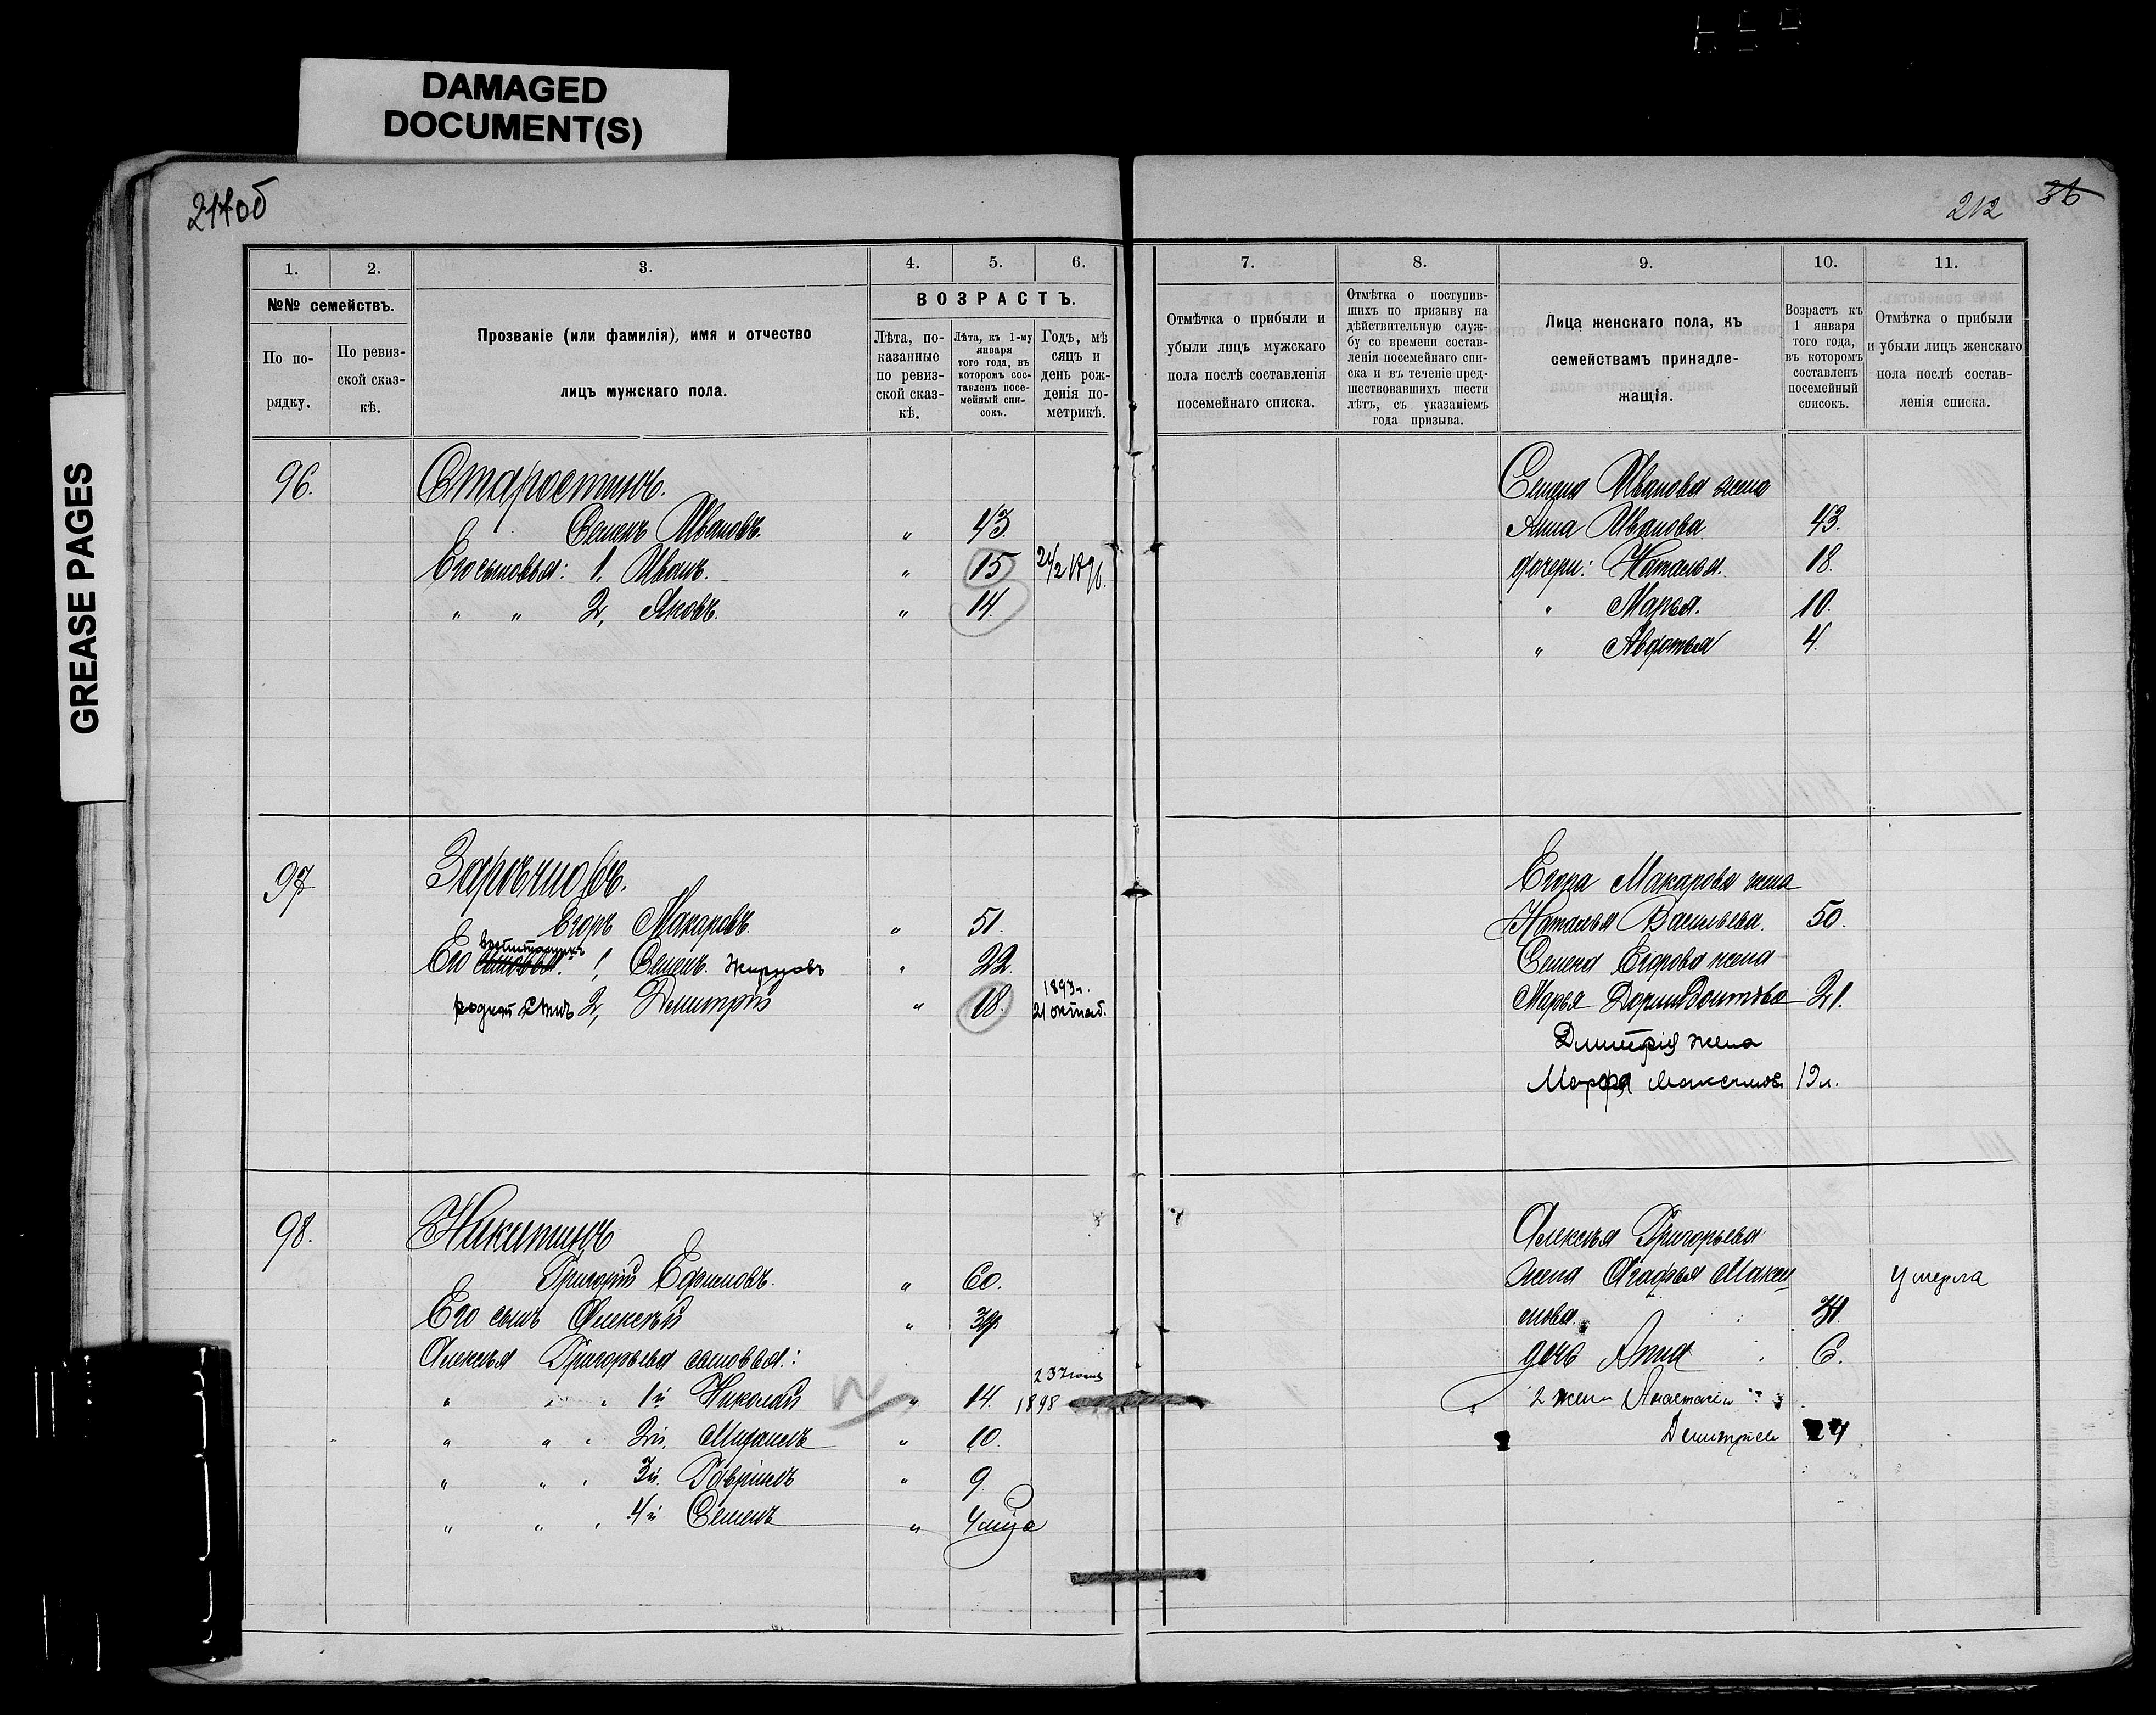 DAMAGED
DOCUMENT(S)
GREASE PAGES
211об
212 36
1. 2. 3. 4. 5. 6.
№№ семействъ.
По по-
рядку.
По ревиз-
ской сказ-
кѣ.
Прозваніе (или фамилія), имя и отчество
лицъ мужскаго пола.
ВОЗРАСТЪ.
Лѣта, по-
казанные
по ревиз-
ской сказ-
кѣ.
Лѣта, къ 1-му
января
того года, въ
которомъ сос-
тавленъ посе-
мейный спи-
сокъ.
Годъ, мѣ
сяцъ и
день рож-
денія по-
метрикѣ.
7. 8. 9. 10. 11.
Отмѣтка о прибыли и
убыли лицъ мужскаго
пола послѣ составленія
посемейнаго списка.
Отмѣтка о поступив-
шихъ по призыву на
дѣйствительную служ-
бу со времени состав-
ленія посемейнаго спи-
ска и въ теченіе пред-
шествовавшихъ шести
лѣтъ, съ указаніемъ
года призыва.
Лица женскаго пола, къ
семействамъ принадле-
жащія.
Возрастъ къ
1 января
того года,
въ которомъ
составленъ
посемейный
списокъ.
Отмѣтка о прибыли
и убыли лицъ женскаго
пола послѣ состав-
ленія списка.
96. Старостинъ.
Семенъ Ивановъ. " 43.
Его сыновья: 1, Иванъ. " 15 24/2 1896.
" " 2, Яковъ. " 14.
Семена Иванова жена
Анна Иванова. 43.
дочери: Наталья. 18.
" Марья. 10.
" Авдотья 4.
97 Зарѣчновъ.
Егоръ Макаровъ. " 51.
воспитанникъ
Его сыновья: 1, Семенъ. Жирновъ " 22.
родной сынъ 2, Дмитрій " 18. 1893 г.
21 октяб.
Егора Макарова жена
Наталья Васильева. 50.
Семена Егорова жена
Марья 21.
Дмитрія жена
Марфа Максимова 19 л.
98. Никитинъ
Григорій Ефимовъ. " 60.
Его сынъ Алексѣй " 39.
Алексѣя Григорьева сыновья:
" " " 1й Николай " 14. 23
1898
" " " 2й. Михаилъ " 10.
" " " 3й. Гавріилъ " 9
" " " 4й Семенъ " 4 мѣс
Алексѣя Григорьева
жена Агафья Макси
мова. Умерла
дочь Анна 6.
2 жена Анастасія
Дмитріева 24